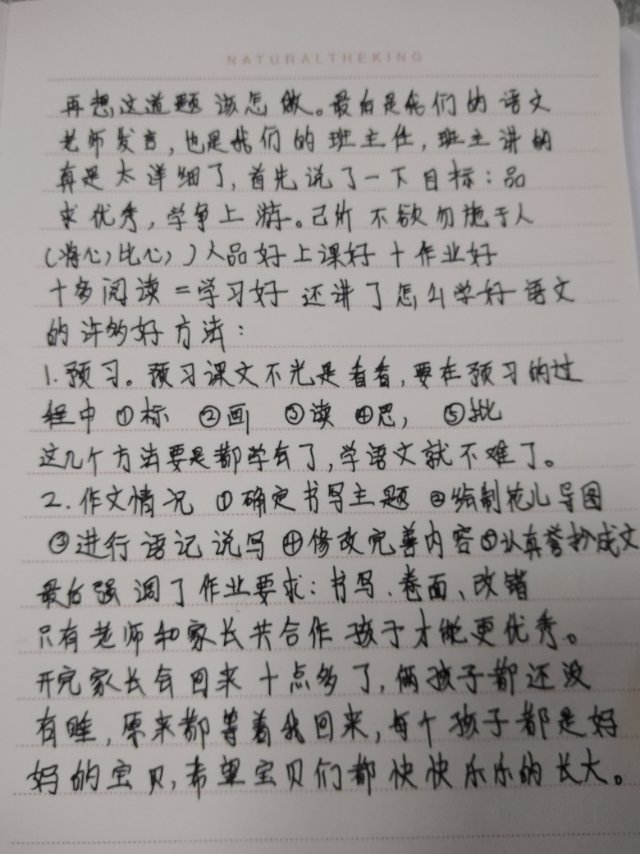 NATURALTHEKING
再想这道题该怎做。最后是我们的语文
老师发言,也是我们的班主任,班主讲的
真是太详细了,首先说了一下目标:品
求优秀,学争上游。己所不欲勿施于人
(将心比心)人品好上课好十作业好
十多阅读=学习好 还讲了怎么学好语文
的许多好方法:
1.预习。预习课文不光是看看,要在预习的过
程中 ①标 ②画 ③读 ④思, ⑤批
这几个方法要是都学会了,学语文就不难了。
2.作文情况 ①确定书写主题 ②绘制花儿导图
③进行语记说写 ④修改完善内容⑤认真誊抄成文
最后强调了作业要求:书写、卷面、改错
只有老师和家长共合作 孩子才能更优秀。
开完家长会回来十点多了,俩孩子都还没
有睡,原来都等着我回来,每个孩子都是好
妈的宝贝,希望宝贝们都快快乐乐的长大。